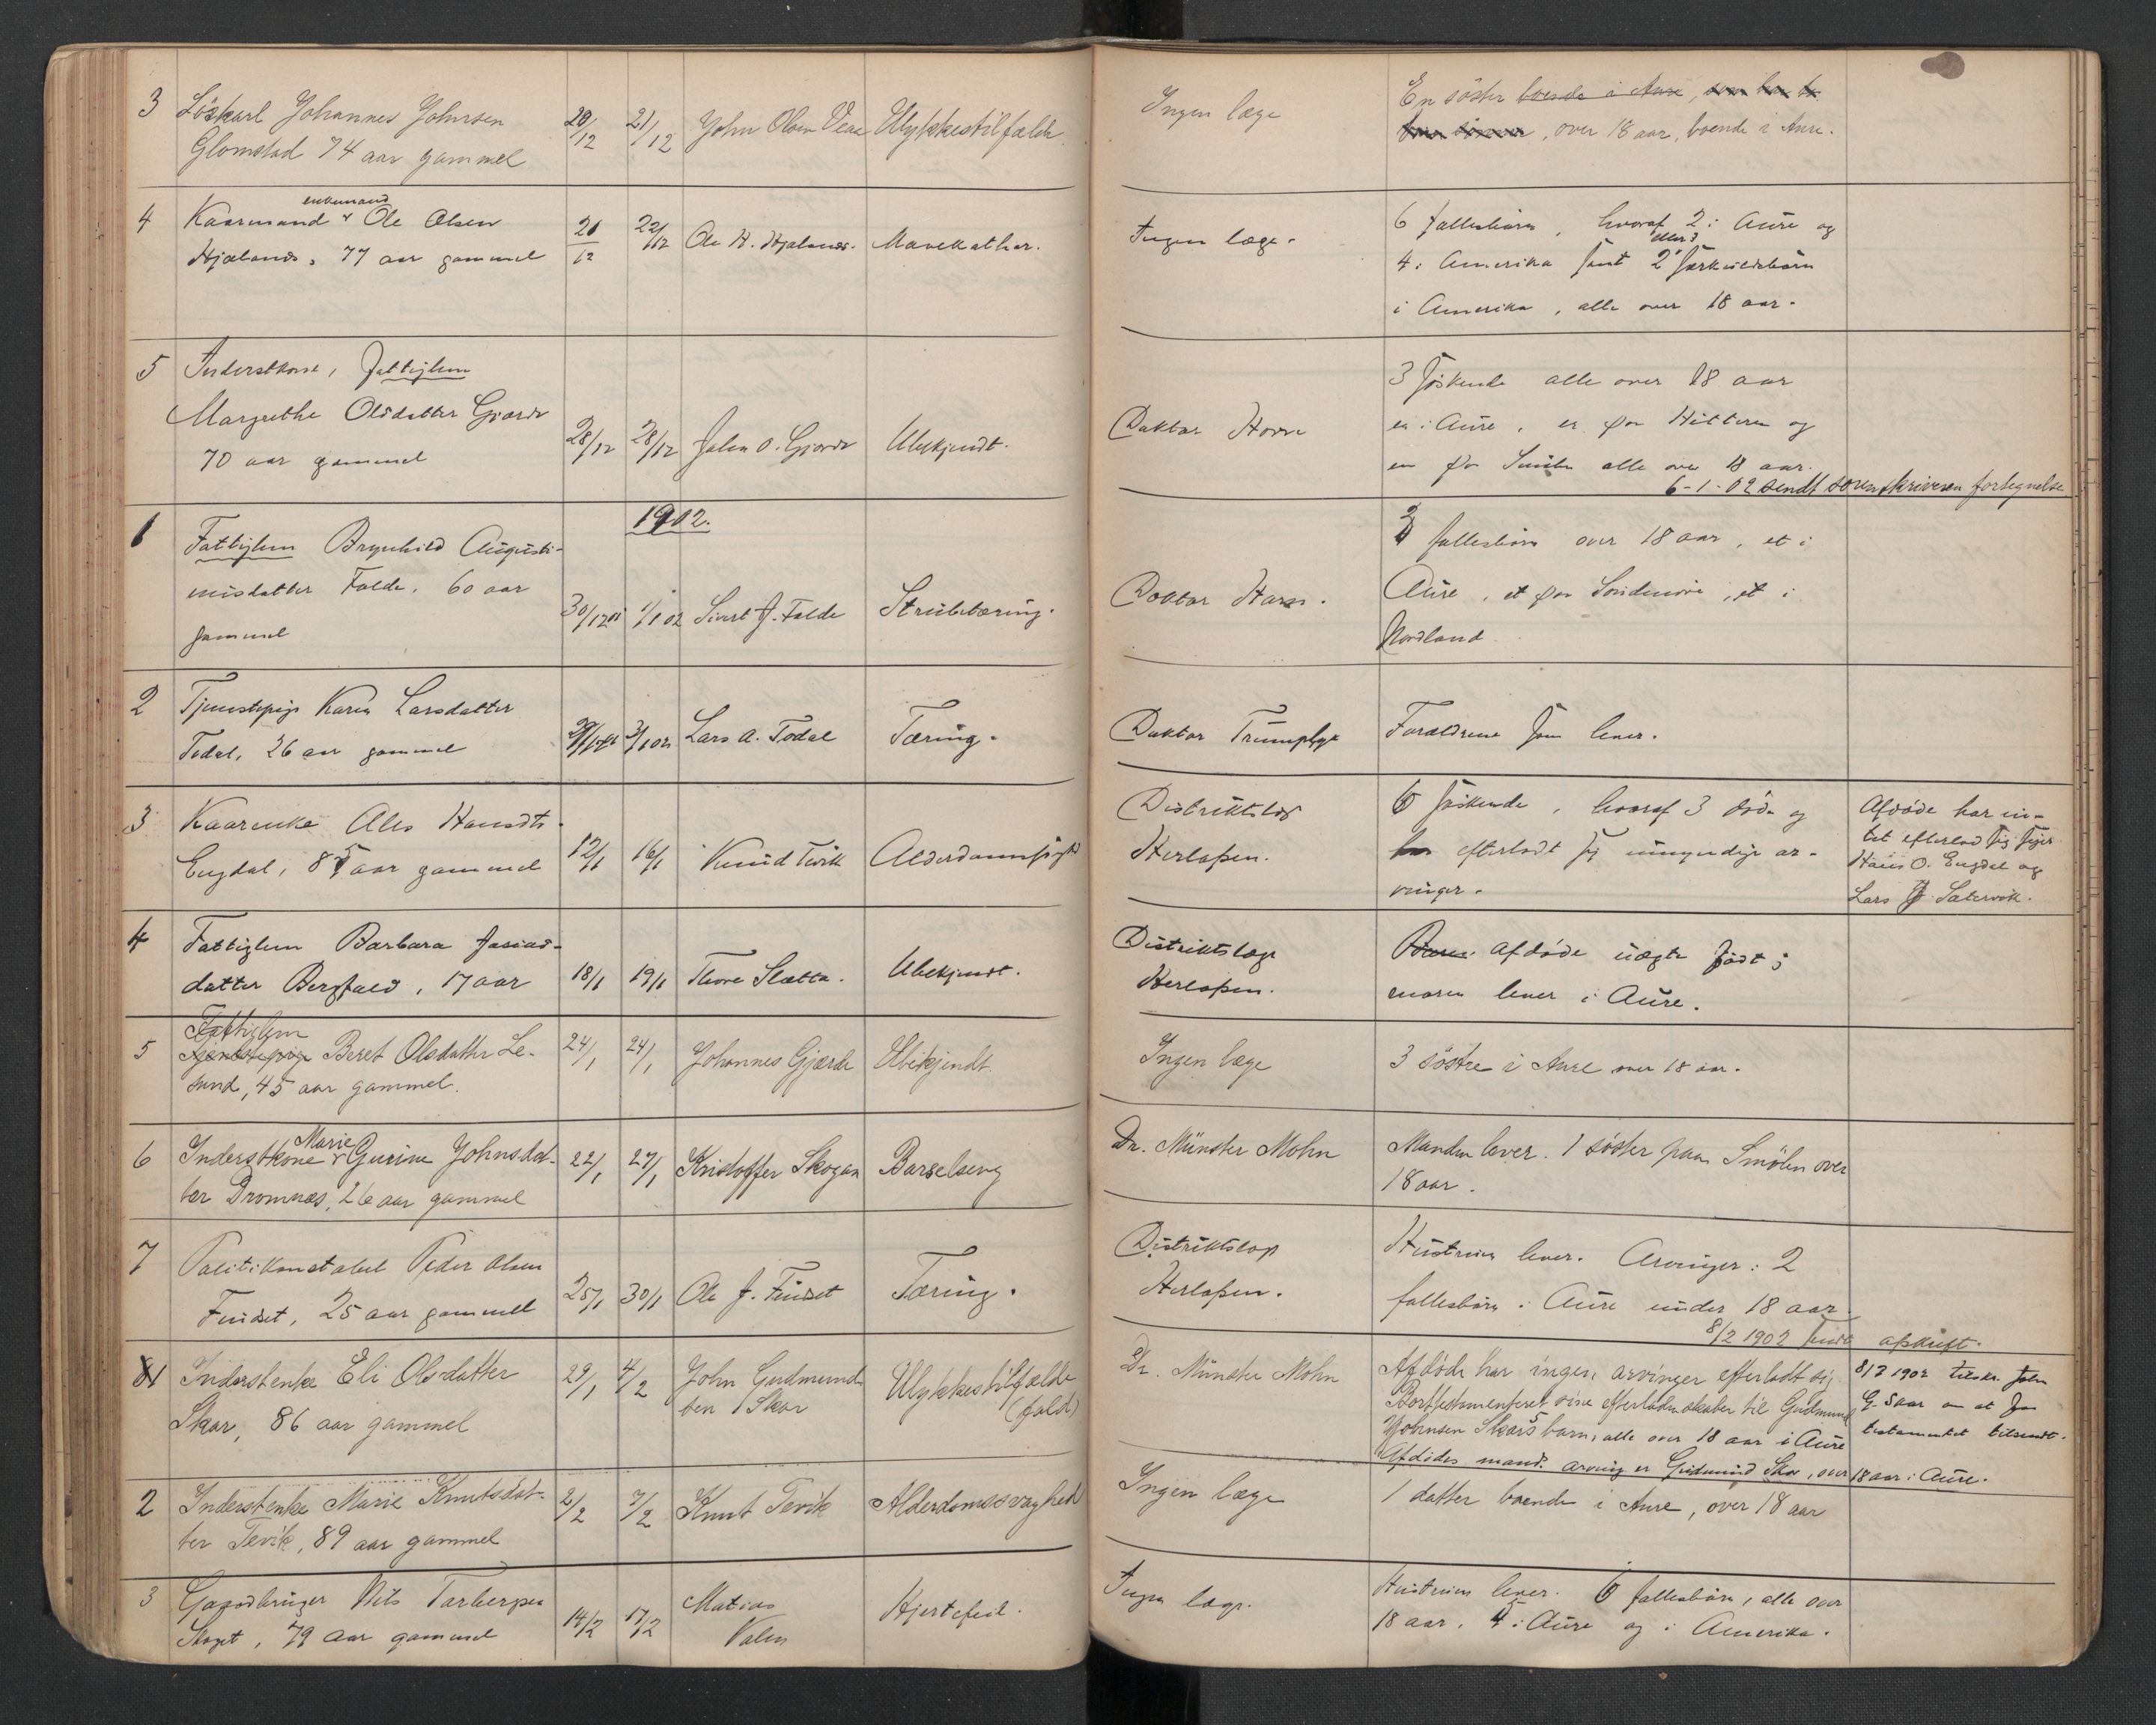 3 Löskarl Johannes Johnsen 20/12 21/12 John Olsen Ulykkestilfælde Ingen læge En söster boende i Aure, som har to
Glomstad 74 aar gammel sönner, over 18 aar, boende i Aure.
enkemand
4 Kaarmand v Ole Olsen 21/12 22/12 Ole H. Hjælsnes. Mavekathar. Ingen læge. 6 fællesbörn, hvoraf 2 i Aure og
Hjælsnes, 77 aar gammel eller 3
4 i Amerika samt 2 særkuldsbörn
i Amerika, alle over 18 aar.
5 Inderstkone, Fattiglem 3 söskende alle over 18 aar
Margrethe Olsdatter Gjærde 28/12 28/12 John O. Gjærde Ubekjendt. Doktor en i Aure, en paa Hitteren og
70 aar gammel en paa Smölen alle over 18 aar.
6-1-02 sendt sorenskriveren fortegnelse
1902.
1 Fattiglem Brynhild Augusti- 3 fællesbörn over 18 aar, et i
nusdatter Folde, 60 aar 30/12 01 1/1 02 Sivert J. Folde Strubetæring. Doktor Aure, et paa Söndmöre, et i
gammel Nordland
2 Tjenestepige Karen Larsdatter
Todal, 26 aar gammel 3/1 02 Lars A. Todal Tæring. Doktor Forældrene som lever.
3 Kaarenke Ales Hansdtr. Distriktslæge 6 söskende, hvoraf 3 döde og Afdöde har in-
Engdal, 85 aar gammel 12/1 16/1 Knud Tevik Alderdomssvaghed Herlofsen. har efterladt sig umyndige ar- tet efterlad sig siger
vinger. Hans O. Engdal og
Lars Sætervik.
4 Fattiglem Barbara Josias- Distriktslæge Afdöde uægte födt;
datter Bergfald, 17 aar 18/1 19/1 Thore Slætta. Ubekjendt. Herlofsen. moren lever i Aure.
Fattiglem
5 Tjenestepige Beret Olsdatter Le- 24/1 24/1 Johannes Gjærde Ubekjendt. Ingen læge 3 söstre i Aure over 18 aar.
sund, 45 aar gammel.
Marie
6 Inderstkone v Gurine Johnsdat- 22/1 27/1 Kristoffer Skogan Barselseng Dr. Münster Mohn Manden lever. 1 söster paa Smölen over
ter Dromnæs, 26 aar gammel 18 aar.
7 Politikonstabel Peder Olsen Distriktslæge Hustruen lever. Arvinger: 2
Finset, 25 aar gammel 25/1 30/1 Ole J. Finset Tæring. Herlofsen. fællesbörn i Aure under 18 aar.
8/2 1902 sendt afskrift.
1 Inderstenke Eli Olsdatter 29/1 4/2 John Gudmund- Ulykkestilfælde Dr. Münster Mohn Afdöde har ingen arvinger efterladt sig. 8/2 1902 tilskr. John
Skar, 86 aar gammel sen Skar (fald) Borttestamenteret sine efterladenskaber til Gudmund G. Skar om at faa
Johnsen Skars 5 barn, alle over 18 aar i Aure testamentet tilsendt.
Afdödes mands arving er Gudmund Skar, over 18 aar i Aure.
2 Inderstenke Marie Knutsdat- 2/2 7/2 Knut Tevik Alderdomssvaghed Ingen læge 1 datter boende i Aure, over 18 aar
ter Tevik, 89 aar gammel
3 Gaardbruger Nils Torbergsen 14/2 17/2 Matias Hjertefeil. Ingen læge. Hustruen lever. 6 fællesbörn, alle over
Skoget, 79 aar gammel Valen 18 aar, 5 i Aure og i Amerika.